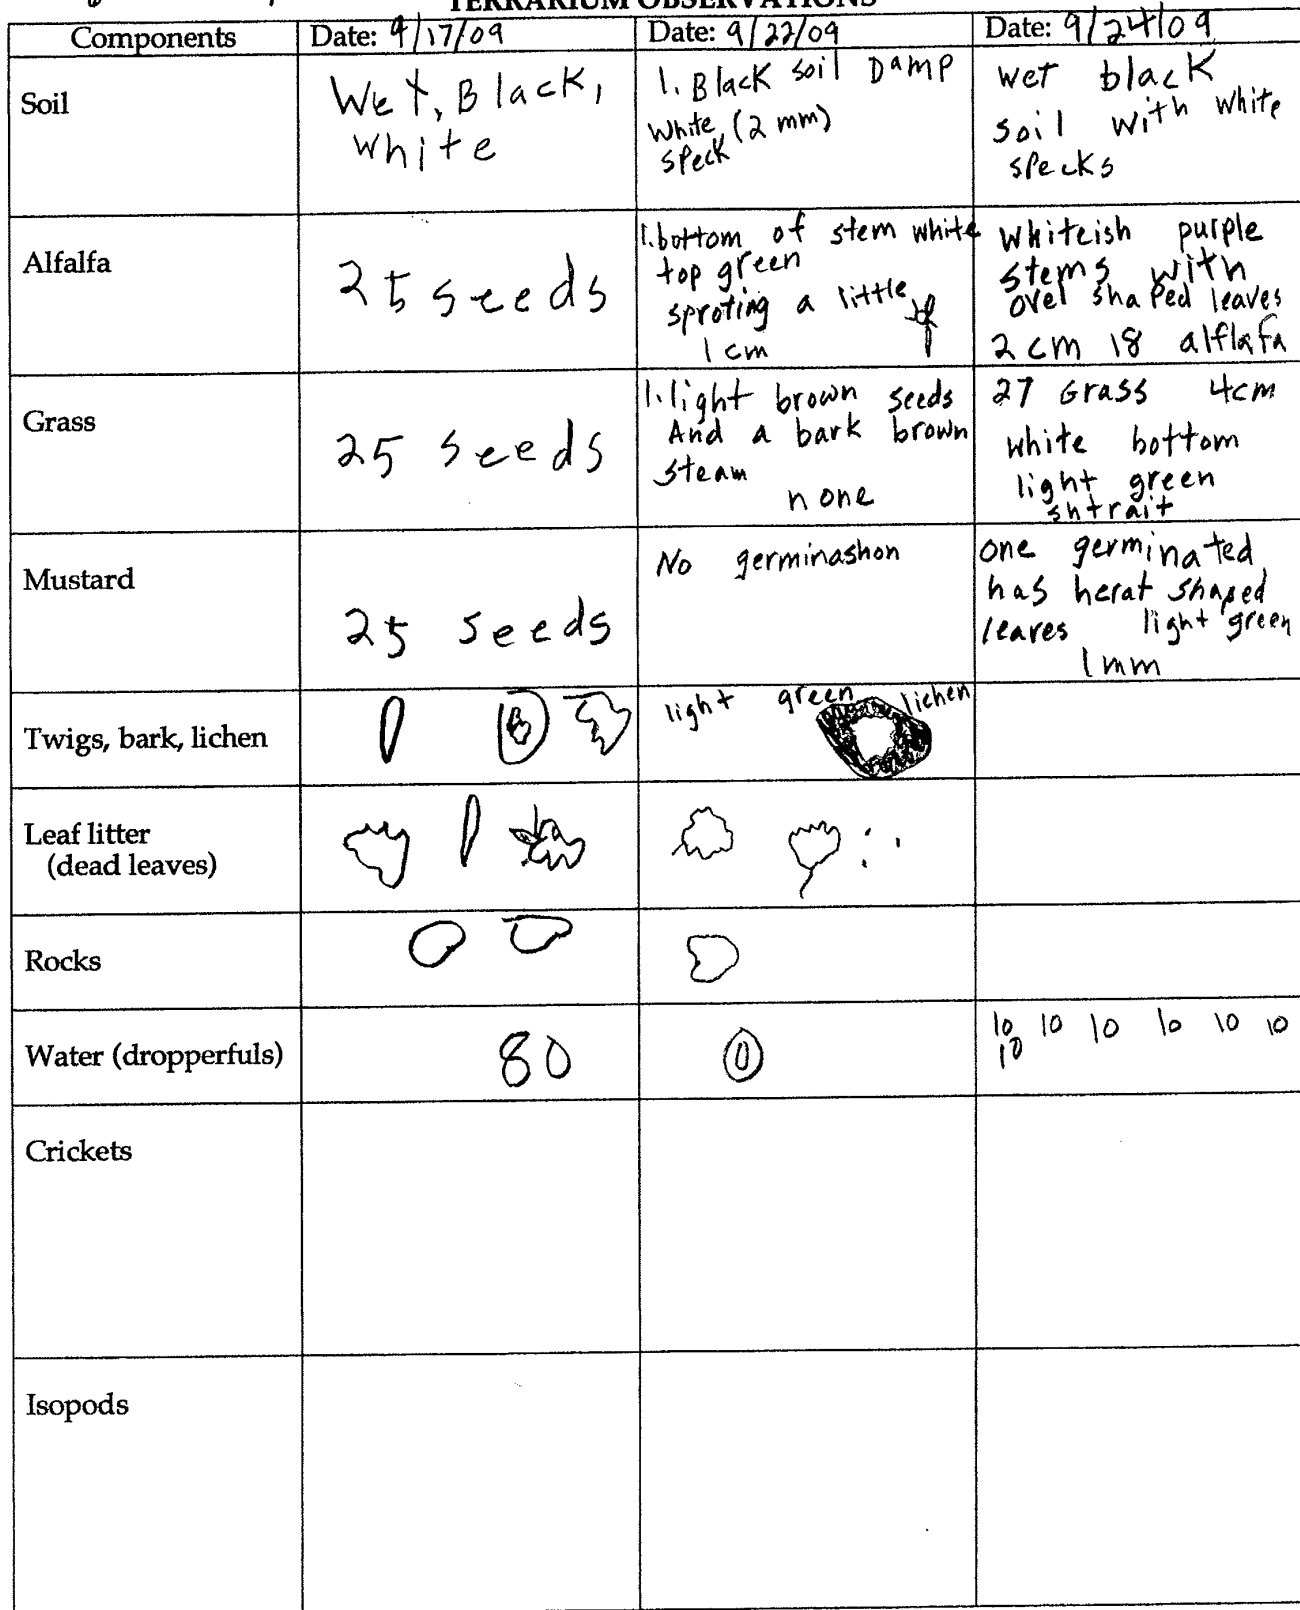 TERRARIUM OBSERVATIONS
Components
Date: 9/17/09
Date: 9/22/09
Date: 9/24/09
Soil
Wet, Black,
white
1. Black soil Damp
white (2 mm)
speck
wet black
soil with white
specks
Alfalfa
25 seeds
1. bottom of stem white
top green
sproting a little
1 cm
Whiteish purple
stems with
ovel shaped leaves
2 cm 18 alflafa
Grass
25 seeds
1. light brown seeds
And a bark brown
steam
none
27 Grass 4cm
white bottom
light green
shtrait
Mustard
25 seeds
No germinashon
one germinated
has herat shaped
leaves light green
1 mm
Twigs, bark, lichen
light green lichen
Leaf litter
(dead leaves)
Rocks
Water (dropperfuls)
80
0
10 10 10 10 10 10
10
Crickets
Isopods